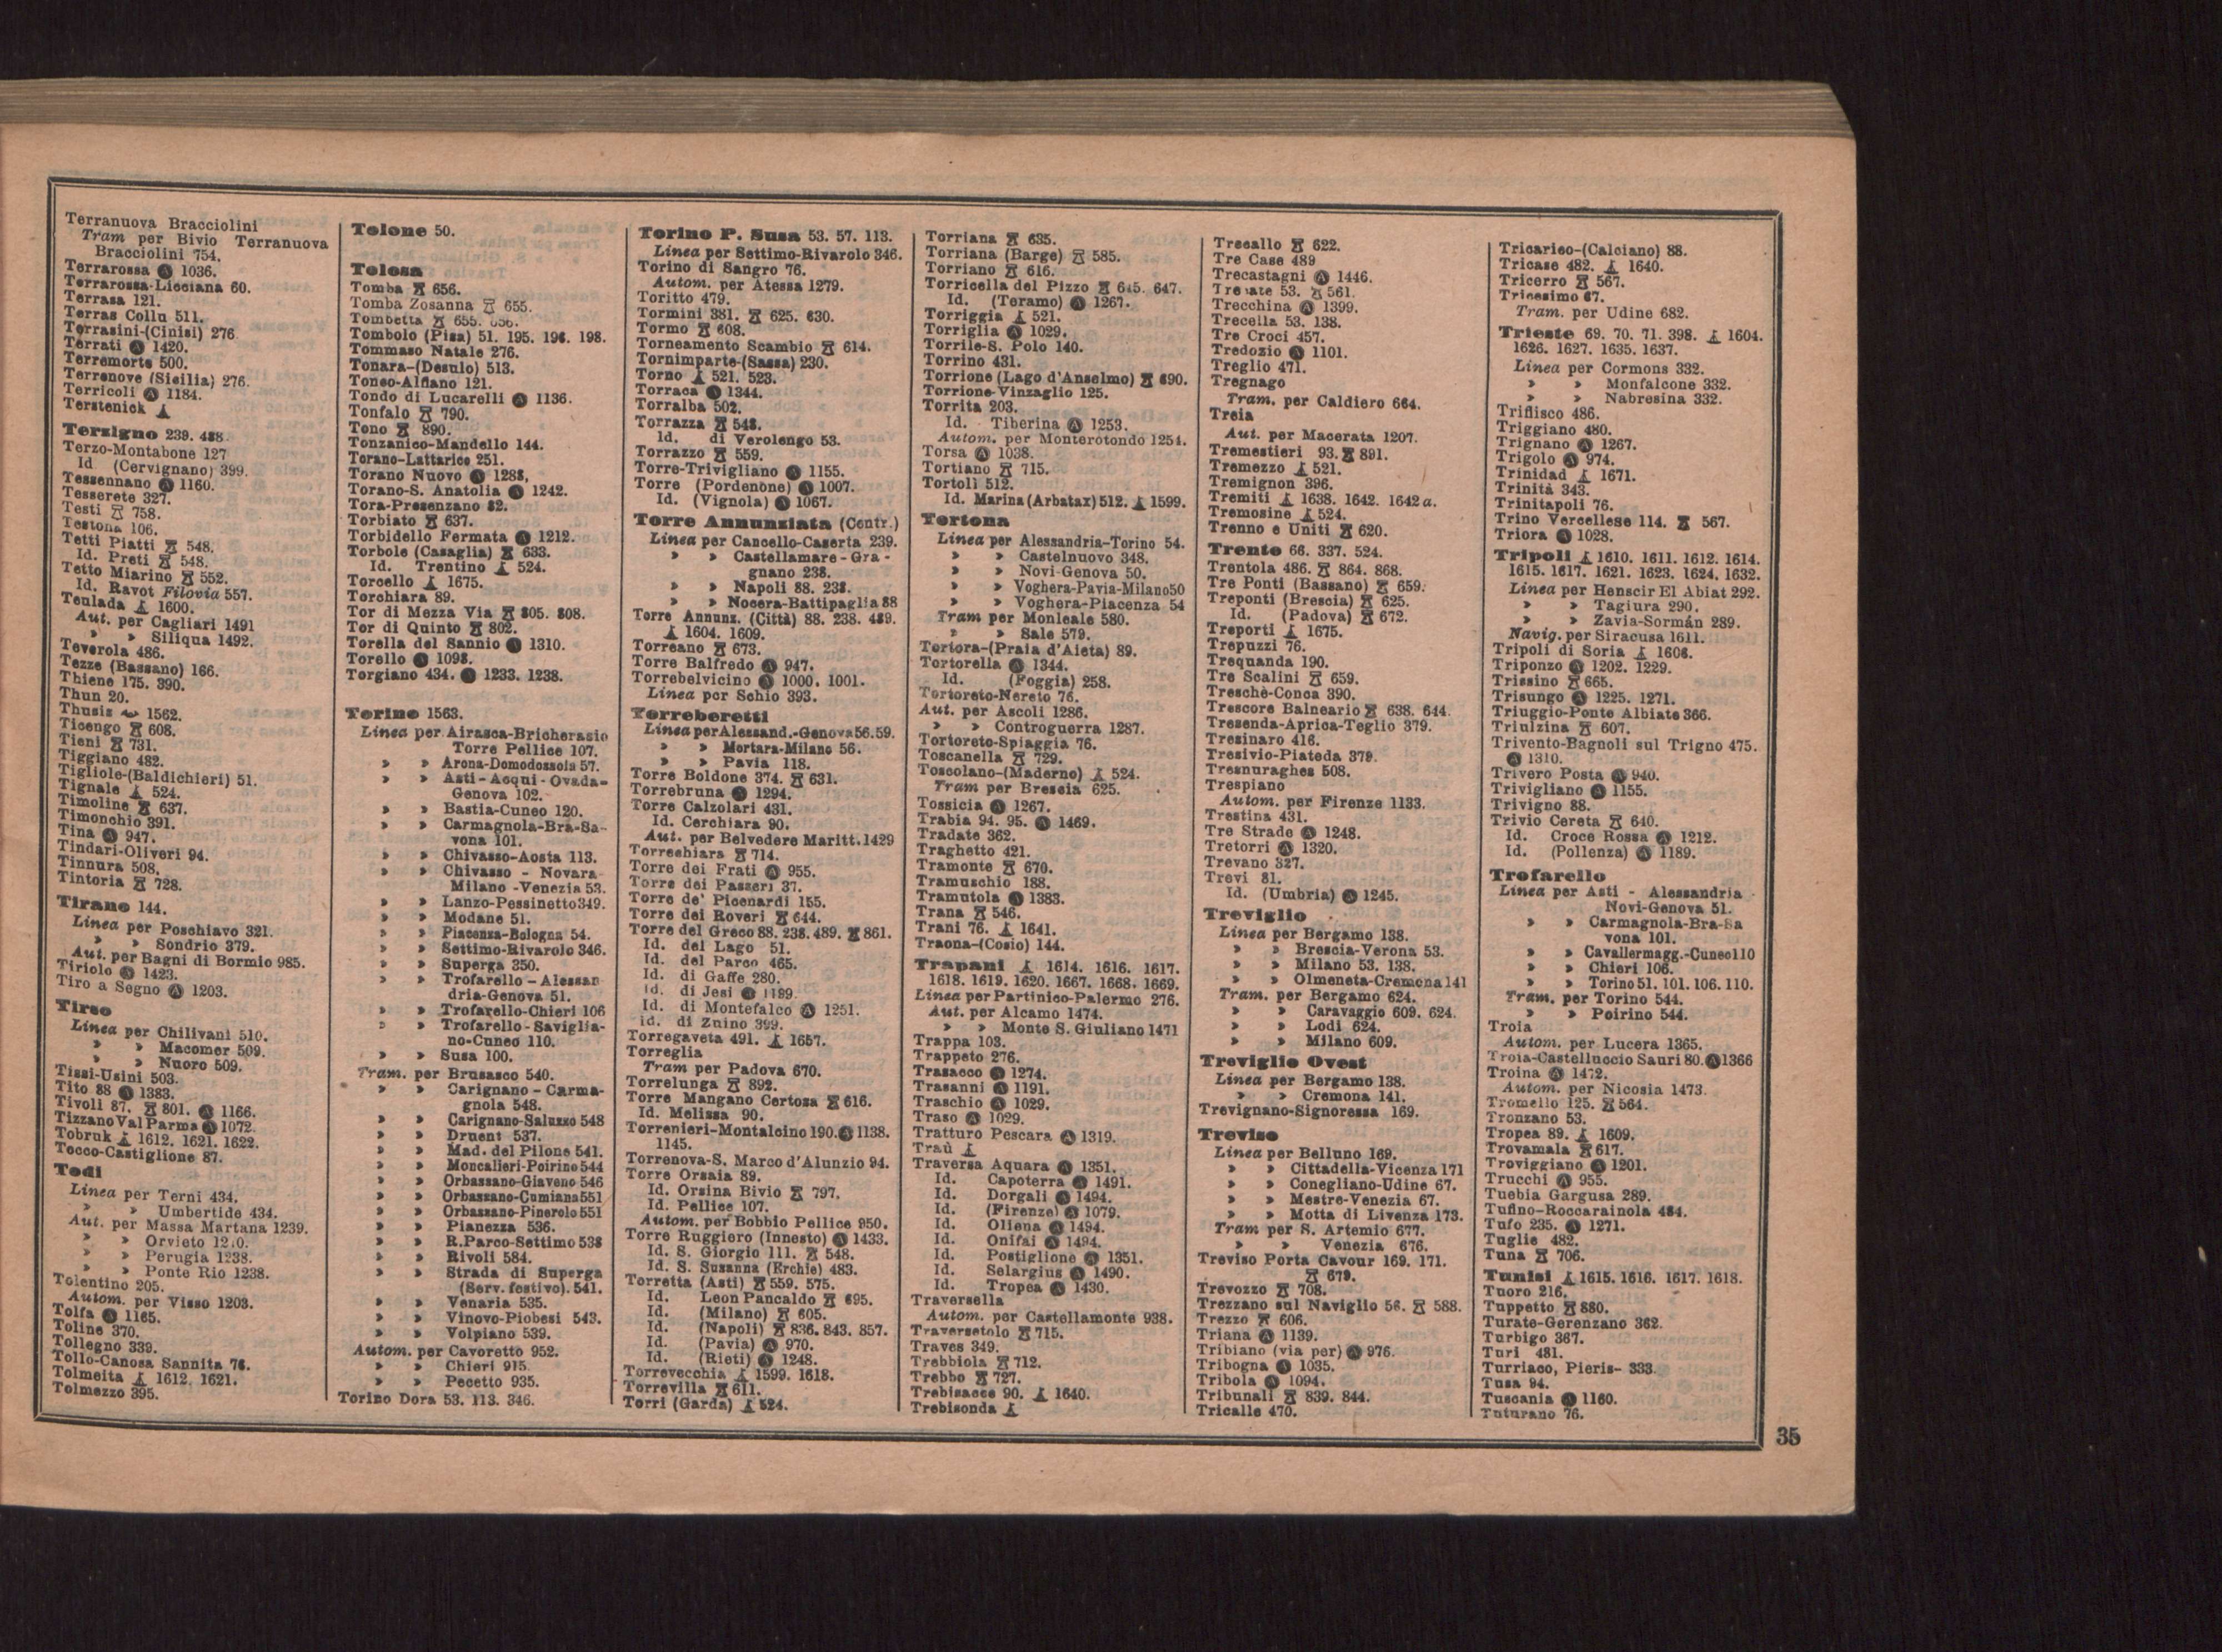 Terranuova Bracciolini
Tram per Bivio Terranuova
Bracciolini 754.
Terrarossa Ⓐ 1036.
Terrarossa-Licciana 60.
Terrasa 121.
Terras Collu 511.
Terrasini-(Cinisi) 276
Terrati Ⓐ 1420.
Terremorte 500.
Terrenove (Sicilia) 276.
Terricoli Ⓐ 1184.
Terstenick
Terzigno 239. 488
Terzo-Montabone 127
Id (Cervignano) 399.
Tessennano Ⓐ 1160.
Tesserete 327.
Testi 758.
Testona 106.
Tetti Piatti 548.
Id. Preti 548.
Tetto Miarino 552.
Id. Ravot Filovia 557.
Teulada 1600.
Aut. per Cagliari 1491
» » Siliqua 1492.
Teverola 486.
Tezze (Bassano) 166.
Thiene 175. 390.
Thun 20.
Thusis 1562.
Ticengo 608.
Tieni 731.
Tiggiano 482.
Tigliole-(Baldichieri) 51.
Tignale 524.
Timoline 637.
Timonchio 391.
Tina Ⓐ 947.
Tindari-Oliveri 94.
Tinnura 508.
Tintoria 728.
Tirano 144.
Linea per Poschiavo 321.
» » Sondrio 379.
Aut. per Bagni di Bormio 985.
Tiriolo Ⓐ 1423.
Tiro a Segno Ⓐ 1203.
Tirso
Linea per Chilivani 510.
» » Macomer 509.
» » Nuoro 509.
Tissi-Usini 503.
Tito 88 Ⓐ 1383.
Tivoli 87. 801. Ⓐ 1166.
Tizzano Val Parma Ⓐ 1072.
Tobruk 1612. 1621. 1622.
Tocco-Castiglione 87.
Todi
Linea per Terni 434.
» » Umbertide 434.
Aut. per Massa Martana 1239.
» » Orvieto
» » Perugia 1238.
» » Ponte Rio 1238.
Tolentino 205.
Autom. per Visso 1203.
Tolfa Ⓐ 1165.
Toline 370.
Tollegno 339.
Tollo-Canosa Sannita 76.
Tolmeita 1612. 1621.
Tolmezzo 395.
Tolone 50.
Tolosa
Tomba 656.
Tomba Zosanna 655.
Tombetta 655.
Tombolo (Pisa) 51. 195. 196. 198.
Tommaso Natale 276.
Tonara-(Desulo) 513.
Tonco-Alfiano 121.
Tondo di Lucarelli Ⓐ 1136.
Tonfalo 790.
Tono 890.
Tonzanico-Mandello 144.
Torano-Lattarico 251.
Torano Nuovo Ⓐ 1288.
Torano-S. Anatolia Ⓐ 1242.
Tora-Presenzano 82.
Torbiato 637.
Torbidello Fermata Ⓐ 1212.
Torbole (Casaglia) 633.
Id. Trentino 524.
Torcello 1675.
Torchiara 89.
Tor di Mezza Via 805. 808.
Tor di Quinto 802.
Torella del Sannio Ⓐ 1310.
Torello Ⓐ 1098.
Torgiano 434. Ⓐ 1233. 1238.
Torino 1563.
Linea per Airasca-Bricherasio
Torre Pellice 107.
» » Arona-Domodossola 57.
» » Asti - Acqui - Ovada-
Genova 102.
» » Bastia-Cuneo 120.
» » Carmagnola-Bra-Sa-
vona 101.
» » Chivasso-Aosta 113.
» » Chivasso - Novara
Milano -Venezia 53.
» » Lanzo-Pessinetto 349.
» » Modane 51.
» » Piacenza-Bologna 54.
» » Settimo-Rivarolo 346.
» » Superga 350.
» » Trofarello - Alessan
dria-Genova 51.
» » Trofarello-Chieri 106
» » Trofarello - Saviglia-
no-Cuneo 110.
» » Susa 100.
Tram. per Brusasco 540.
» » Carignano - Carma-
gnola 548.
» » Carignano-Saluzzo 548
» » Druent 537.
» » Mad. del Pilone 541.
» » Moncalieri-Poirino 544
» » Orbassano-Giaveno 546
» » Orbassano-Cumiana 551
» » Orbassano-Pinerolo 551
» » Pianezza 536.
» » R.Parco-Settimo 538
» » Rivoli 584.
» » Strada di Superga
(Serv. festivo). 541.
» » Venaria 535.
» » Vinovo-Piobesi 543.
» » Volpiano 539.
Autom. per Cavoretto 952.
» » Chieri 915.
» » Pecetto 935.
Torino Dora 53. 113. 346.
Torino P. Susa 53. 57. 113.
Linea per Settimo-Rivarolo 346.
Torino di Sangro 76.
Autom. per Atessa 1279.
Toritto 479.
Tormini 381. 625. 630.
Tormo 608.
Torneamento Scambio 614.
Tornimparte-(Sassa) 230.
Torno 521. 523.
Torraca Ⓐ 1344.
Torralba 502.
Torrazza 548.
Id. di Verolengo 53.
Torrazzo 559.
Torre-Trivigliano Ⓐ 1155.
Torre (Pordenone) Ⓐ 1007.
Id. (Vignola) Ⓐ 1067.
Torre Annunziata (Centr.)
Linea per Cancello-Caserta 239.
» » Castellamare - Gra -
gnano 238.
» » Napoli 88. 238.
» » Nocera-Battipaglia 88
Torre Annunz. (Città) 88. 238. 489.
1604. 1609.
Torreano 673.
Torre Balfredo Ⓐ 947.
Torrebelvicino Ⓐ 1000. 1001.
Linea per Schio 393.
Torreberetti
Linea per Alessand.-Genova 56.59.
» » Mortara-Milano 56.
» » Pavia 118.
Torre Boldone 374. 631.
Torrebruna Ⓐ 1294.
Torre Calzolari 431.
Id. Cerchiara 90.
Aut. per Belvedere Maritt. 1429
Torrechiara 714.
Torre dei Frati Ⓐ 955.
Torre dei Passeri 37.
Torre de' Picenardi 155.
Torre dei Roveri 644.
Torre del Greco 88. 238. 489. 861.
Id. del Lago 51.
Id. del Parco 465.
Id. di Gaffe 280.
Id. di Jesi Ⓐ 1199.
Id. di Montefalco Ⓐ 1251.
Id. di Zuino 399.
Torregaveta 491. 1657.
Torreglia
Tram per Padova 670.
Torrelunga 892.
Torre Mangano Certosa 616.
Id. Melissa 90.
Torrenieri-Montalcino 190. Ⓐ 1138.
1145.
Torrenova-S. Marco d'Alunzio 94.
Torre Orsaia 89.
Id. Orsina Bivio 797.
Id. Pellice 107.
Autom. per Bobbio Pellice 950.
Torre Ruggiero (Innesto) Ⓐ 1433.
Id. S. Giorgio 111. 548.
Id. S. Susanna (Erchie) 483.
Torretta (Asti) 559. 575.
Id. Leon Pancaldo 695.
Id. (Milano) 605.
Id. (Napoli) 836. 843. 857.
Id. (Pavia) Ⓐ 970.
Id. (Rieti) Ⓐ 1248.
Torrevecchia 1599. 1618.
Torrevilla 611.
Torri (Garda) 524.
Torriana 635.
Torriana (Barge) 585.
Torriano 616.
Torricella del Pizzo 645. 647.
Id. (Teramo) Ⓐ 1267.
Torriggia 521.
Torriglia Ⓐ 1029.
Torrile-S. Polo 140.
Torrino 431.
Torrione (Lago d'Anselmo) 690.
Torrione-Vinzaglio 125.
Torrita 203.
Id. Tiberina Ⓐ 1253.
Autom. per Monterotondo 1254.
Torsa Ⓐ 1038.
Tortiano 715.
Tortolì 512.
Id. Marina (Arbatax) 512. 1599.
Tortona
Linea per Alessandria-Torino 54.
» » Castelnuovo 348.
» » Novi-Genova 50.
» » Voghera-Pavia-Milano 50
» » Voghera-Piacenza 54
Tram per Monleale 580.
» » Sale 579.
Tortora-(Praia d'Aieta) 89.
Tortorella Ⓐ 1344.
Id. (Foggia) 258.
Tortoreto-Nereto 76.
Aut. per Ascoli 1286.
» » Controguerra 1287.
Tortoreto-Spiaggia 76.
Toscanella 729.
Toscolano-(Maderno) 524.
Tram per Brescia 625.
Tossicia Ⓐ 1267.
Trabia 94. 95. Ⓐ 1469.
Tradate 362.
Traghetto 421.
Tramonte 670.
Tramuschio 188.
Tramutola Ⓐ 1383.
Trana 546.
Trani 76. 1641.
Traona-(Cosio) 144.
Trapani 1614. 1616. 1617.
1618. 1619. 1620. 1667. 1668. 1669.
Linea per Partinico-Palermo 276.
Aut. per Alcamo 1474.
» » Monte S. Giuliano 1471
Trappa 103.
Trappeto 276.
Trasacco Ⓐ 1274.
Trasanni Ⓐ 1191.
Traschio Ⓐ 1029.
Traso Ⓐ 1029.
Tratturo Pescara Ⓐ 1319.
Traù
Traversa Aquara Ⓐ 1351.
Id. Capoterra Ⓐ 1491.
Id. Dorgali Ⓐ 1494.
Id. (Firenze) Ⓐ 1079.
Id. Oliena Ⓐ 1494.
Id. Onifai Ⓐ 1494.
Id. Postiglione Ⓐ 1351.
Id. Selargius Ⓐ 1490.
Id. Tropea Ⓐ 1430.
Traversella
Autom. per Castellamonte 938.
Traversetolo 715.
Traves 349.
Trebbiola 712.
Trebbo 727.
Trebisacce 90. 1640.
Trebisonda
Trecallo 622.
Tre Case 489
Trecastagni Ⓐ 1446.
Trecate 53. 561.
Trecchina Ⓐ 1399.
Trecella 53. 138.
Tre Croci 457.
Tredozio Ⓐ 1101.
Treglio 471.
Tregnago
Tram. per Caldiero 664.
Treia
Aut. per Macerata 1207.
Tremestieri 93. 891.
Tremezzo 521.
Tremignon 396.
Tremiti 1638. 1642. 1642 a.
Tremosine 524.
Trenno e Uniti 620.
Trento 66. 337. 524.
Trentola 486. 864. 868.
Tre Ponti (Bassano) 659.
Treponti (Brescia) 625.
Id. (Padova) 672.
Treporti 1675.
Trepuzzi 76.
Trequanda 190.
Tre Scalini 659.
Treschè-Conca 390.
Trescore Balneario 638. 644.
Tresenda-Aprica-Teglio 379.
Tresinaro 416.
Tresivio-Piateda 379.
Tresnuraghes 508.
Trespiano
Autom. per Firenze 1133.
Trestina 431.
Tre Strade Ⓐ 1248.
Tretorri Ⓐ 1320.
Trevano 327.
Trevi 81.
Id. (Umbria) Ⓐ 1245.
Treviglio
Linea per Bergamo 138.
» » Brescia-Verona 53.
» » Milano 53. 138.
» » Olmeneta-Cremona 141
Tram. per Bergamo 624.
» » Caravaggio 609. 624.
» » Lodi 624.
» » Milano 609.
Treviglio Ovest
Linea per Bergamo 138.
» » Cremona 141.
Trevignano-Signoressa 169.
Treviso
Linea per Belluno 169.
» » Cittadella-Vicenza 171
» » Conegliano-Udine 67.
» » Mestre-Venezia 67.
» » Motta di Livenza 173.
Tram per S. Artemio 677.
» » Venezia 676.
Treviso Porta Cavour 169. 171.
679.
Trevozzo 708.
Trezzano sul Naviglio 56. 588.
Trezzo 606.
Triana Ⓐ 1139.
Tribiano (via per) Ⓐ 976.
Tribogna Ⓐ 1035.
Tribola Ⓐ 1094.
Tribunali 839. 844.
Tricalle 470.
Tricarico-(Calciano) 88.
Tricase 482. 1640.
Tricerro 567.
Tricesimo 67.
Tram. per Udine 682.
Trieste 69. 70. 71. 398. 1604.
1626. 1627. 1635. 1637.
Linea per Cormons 332.
» » Monfalcone 332.
» » Nabresina 332.
Triflisco 486.
Triggiano 480.
Trignano Ⓐ 1267.
Trigolo Ⓐ 974.
Trinidad 1671.
Trinità 343.
Trinitapoli 76.
Trino Vercellese 114. 567.
Triora Ⓐ 1028.
Tripoli 1610. 1611. 1612. 1614.
1615. 1617. 1621. 1623. 1624. 1632.
Linea per Henscir El Abiat 292.
» » Tagiura 290.
» » Zavia-Sormán 289.
Navig. per Siracusa 1611.
Tripoli di Soria 1608.
Triponzo Ⓐ 1202. 1229.
Trissino 665.
Trisungo Ⓐ 1225. 1271.
Triuggio-Ponte Albiate 366.
Triulzina 607.
Trivento-Bagnoli sul Trigno 475.
Ⓐ 1310.
Trivero Posta Ⓐ 940.
Trivigliano Ⓐ 1155.
Trivigno 88.
Trivio Cereta 640.
Id. Croce Rossa Ⓐ 1212.
Id. (Pollenza) Ⓐ 1189.
Trofarello
Linea per Asti - Alessandria
Novi-Genova 51.
» » Carmagnola-Bra-Sa
vona 101.
» » Cavallermagg.-Cuneo 110
» » Chieri 106.
» » Torino 51. 101. 106. 110.
Tram. per Torino 544.
» » Poirino 544.
Troia
Autom. per Lucera 1365.
Troia-Castelluccio Sauri 80. Ⓐ 1366
Troina Ⓐ 1472.
Autom. per Nicosia 1473.
Tromello 125. 564.
Tronzano 53.
Tropea 89. 1609.
Trovamala 617.
Troviggiano Ⓐ 1201.
Trucchi Ⓐ 955.
Tuebia Gargusa 289.
Tufino-Roccarainola 484.
Tufo 235. Ⓐ 1271.
Tuglie 482.
Tuna 706.
Tunisi 1615. 1616. 1617. 1618.
Tuoro 216.
Tuppetto 880.
Turate-Gerenzano 362.
Turbigo 367.
Turi 481.
Turriaco, Pieris- 333.
Tusa 94.
Tuscania Ⓐ 1160.
Tuturano 76.
35